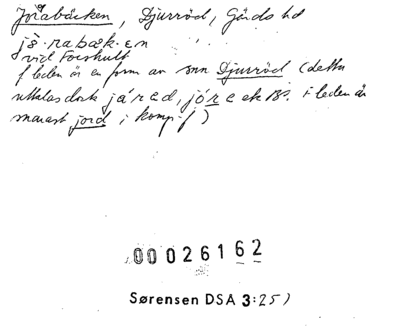 Jorabäcken, Djurröd, Gärds hd
jö·rabæk·en
vid Forshult
f leden är en form av snn Djurröd (detta
uttalas dock járed, jóre etc. f-leden är
snarast jord i komp.f)
00026162
Sørensen DSA 3:257